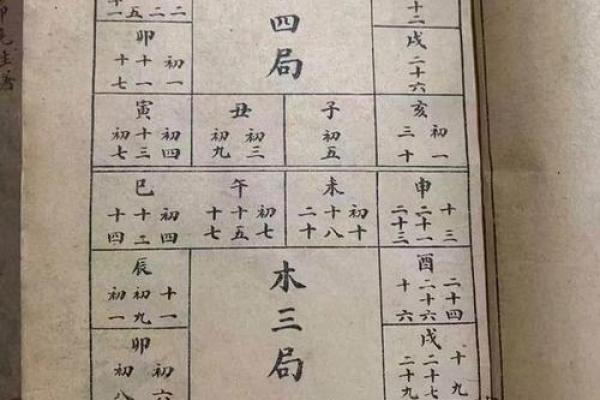 十二
卯
初一
十一
十七
四局
戌
二十六
寅
初四
十三
初七
丑
初三
初九
子
初五
亥
初一
三十
巳
初四
十二
十四
午
初七
十五
十七
未
初十
十八
二十
申
十三
二十一
二十三
辰
十一
初九
初一
木三局
酉
二十四
二十六
十六
卯
初六
初八
戌
十九
二十七
二十九